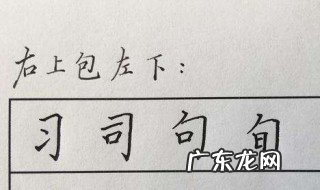 右上包左下：
习司句旬
广东龙网